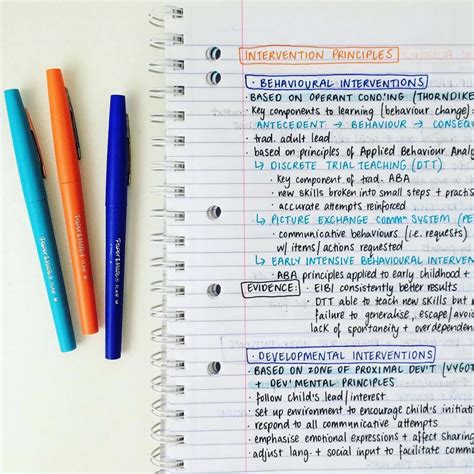 INTERVENTION PRINCIPLES
· BEHAVIOURAL INTERVENTIONS
· BASED ON OPERANT COND'ING (THORNDIKE
· Key components to learning (behaviour change):
ANTECEDENT → BEHAVIOUR → CONSEQU
· trad. adult lead
· based on principles of Applied Behaviour Anal
↳ DISCRETE TRIAL TEACHING (DTT)
· Key component of trad. ABA
· new skills broken into small steps + practis
· accurate attempts reinforced
↳ PICTURE EXCHANGE COMMN SYSTEM (PE
· communicative behaviours (i.e. requests)
w/ items/actions requested
↳ EARLY INTENSIVE BEHAVIOURAL INTERVEN
· ABA principles applied to early childhood +
EVIDENCE: · EIBI consistently better results
· DTT able to teach new skills but
failure to generalise, escape/avoi
lack of spontaneity + overdependen
· DEVELOPMENTAL INTERVENTIONS
· BASED ON ZONE OF PROXIMAL DEV'T (VYGOT
+ DEV'MENTAL PRINCIPLES
· follow child's lead/interest
· set up environment to encourage child's initiat
· respond to all communicative attempts
· emphasise emotional expressions + affect sharing
· adjust lang. + social input to facilitate commun
PAPER MATE FLAIR M
PAPER MATE FLAIR M
PAPER MATE FLAIR M